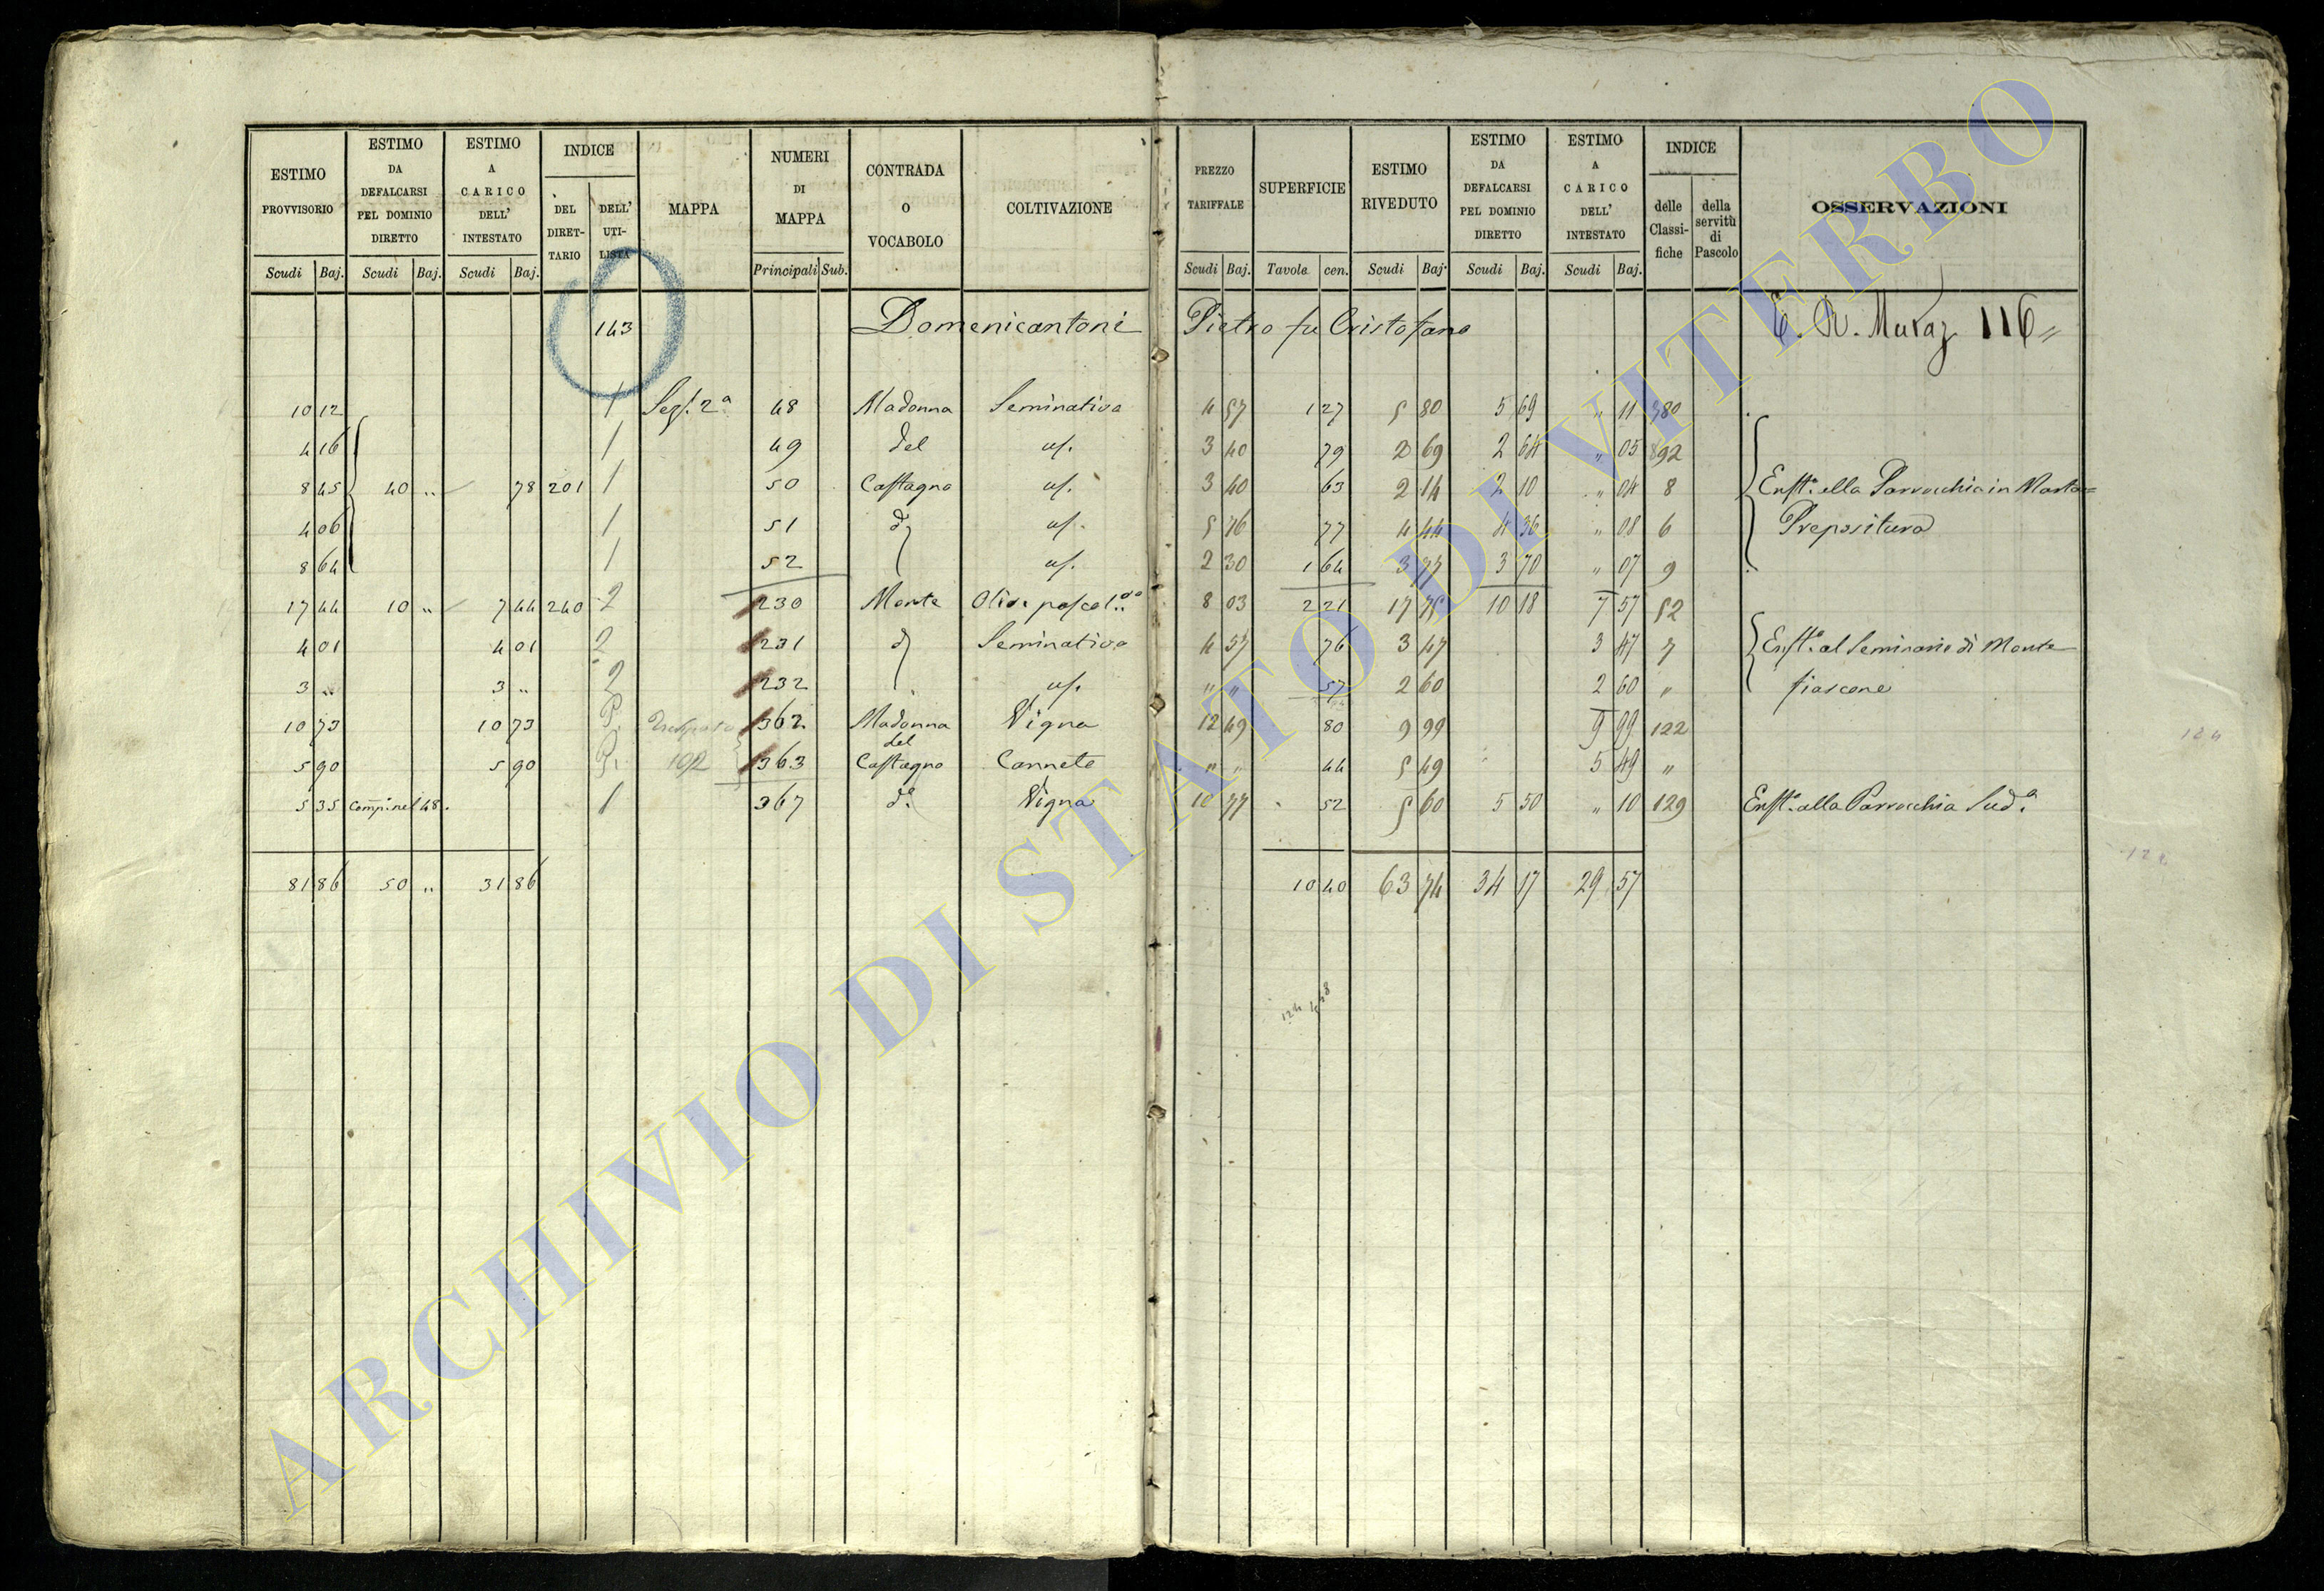 ESTIMO PROVVISORIO | ESTIMO DA DEFALCARSI PEL DOMINIO DIRETTO | ESTIMO A CARICO DELL' INTESTATO | INDICE DEL DIRET-TARIO | DELL' UTI-LISTA | MAPPA | NUMERI DI MAPPA | CONTRADA O VOCABOLO | COLTIVAZIONE | PREZZO TARIFFALE | SUPERFICIE | ESTIMO RIVEDUTO | ESTIMO DA DEFALCARSI PEL DOMINIO DIRETTO | ESTIMO A CARICO DELL' INTESTATO | INDICE delle Classi-fiche | della servitù di Pascolo | OSSERVAZIONI
Scudi Baj. | Scudi Baj. | Scudi Baj. | Principali Sub. | Scudi Baj. | Tavole cen. | Scudi Baj. | Scudi Baj. | Scudi Baj.
143 Domenicantoni Pietro fu Cristofano 116
10 12 | 1 | Sez. 2ª | 48 | Madonna | Seminativo | 4 57 | 1 27 | 5 80 | 5 69 | " 11 | 380
4 16 | 1 | 49 | del | us. | 3 40 | 79 | 2 69 | 2 64 | " 05 | 892
8 45 | 40 " | 78 | 201 | 1 | 50 | Castagno | us. | 3 40 | 63 | 2 14 | 2 10 | " 04 | 8 | Enft.ª alla Parrocchia in Marta=
4 06 | 1 | 51 | us. | 5 76 | 77 | 4 44 | 4 36 | " 08 | 6 | Prepositura
8 64 | 1 | 52 | us. | 2 30 | 1 64 | 3 77 | 3 70 | " 07 | 9
17 44 | 10 " | 7 44 | 240 | 2 | 230 | Monte | 8 03 | 2 21 | 17 75 | 10 18 | 7 57 | 52
4 01 | 4 01 | 2 | 231 | Seminativo | 4 57 | 76 | 3 47 | 3 47 | 7 | Enft.ª al Seminario di Monte
3 " | 3 " | 2 | 232 | us. | " " | 57 | 2 60 | 2 60 | " | fiascone
10 73 | 10 73 | 362 | Madonna | Vigna | 12 49 | 80 | 9 99 | 9 99 | 122
5 90 | 5 90 | 363 | del Castagno | Canneto | " " | 44 | 5 49 | 5 49 | "
5 35 | Comp. nel 48. | 1 | 367 | dº | Vigna | 10 77 | 52 | 5 60 | 5 50 | " 10 | 129 | Enft.ª alla Parrocchia Sudª
81 86 | 50 " | 31 86 | 10 40 | 63 74 | 34 17 | 29 57
ARCHIVIO DI STATO DI VITERBO